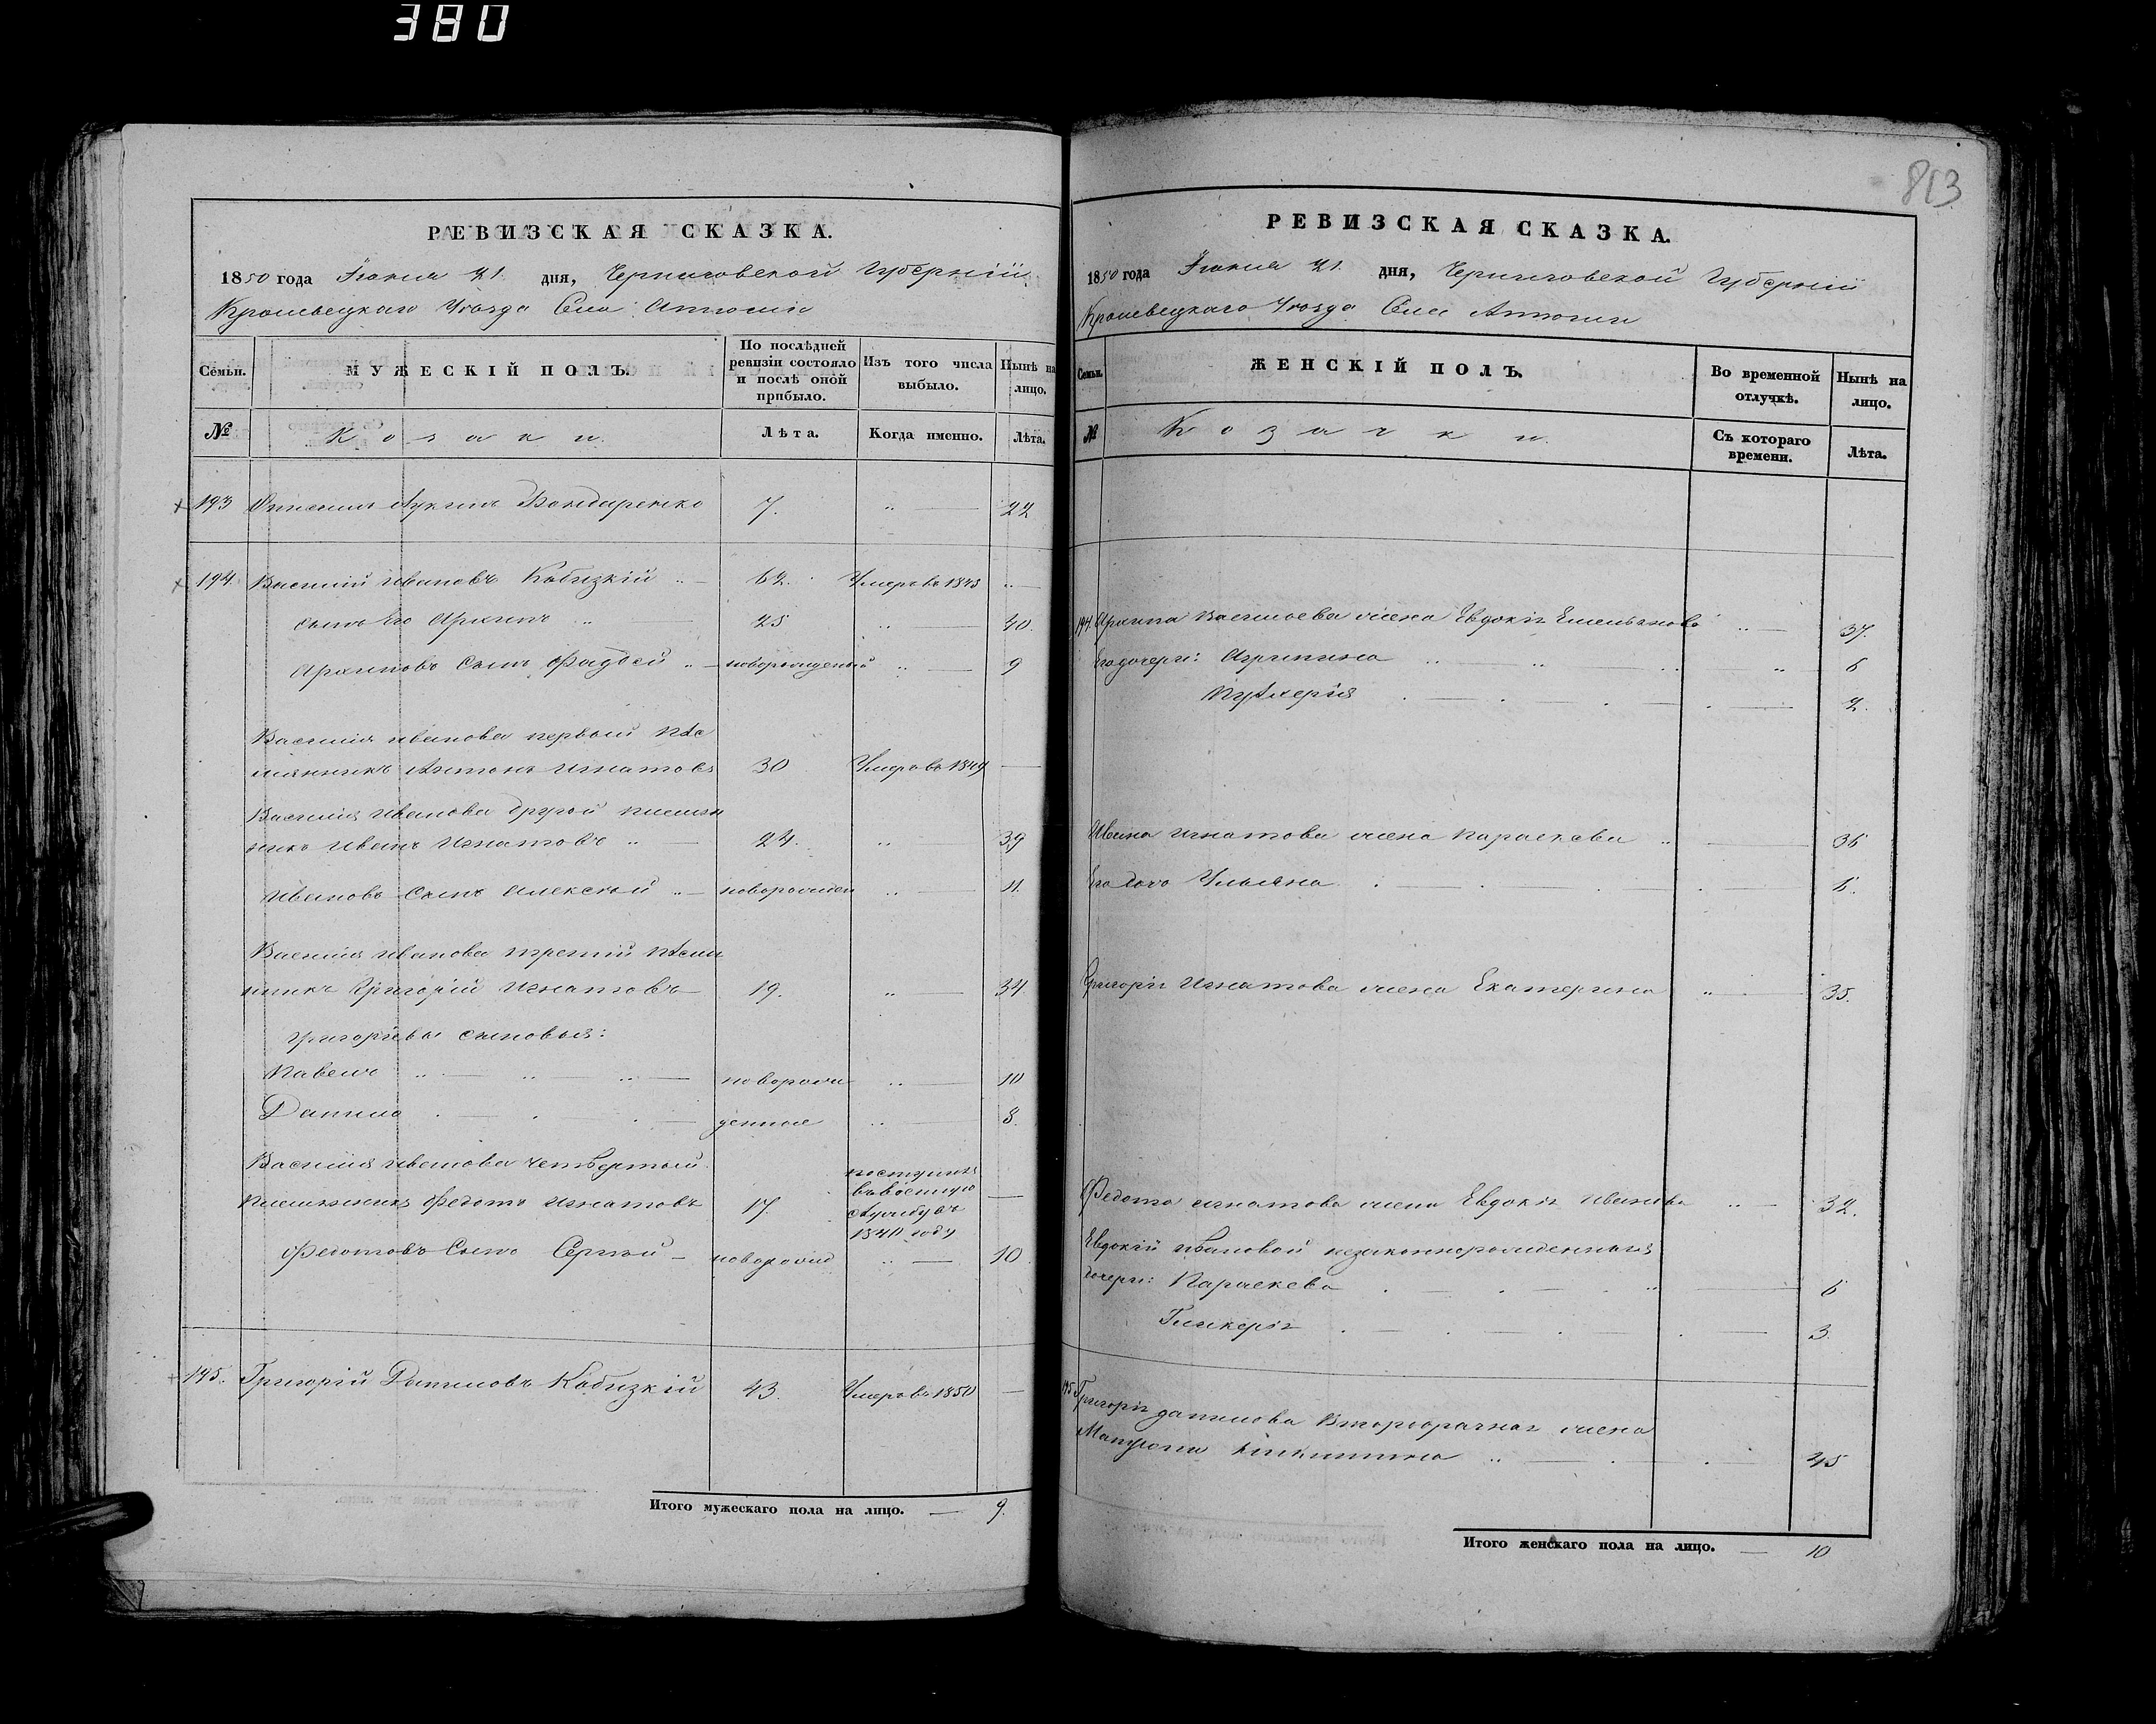 380
813
РЕВИЗСКАЯ СКАЗКА.
1850 года Іюня 21. дня, Черниговской Губерніи
Кролевецкаго Уѣзда Села
Семьи. МУЖЕСКІЙ ПОЛЪ. По послѣдней ревизіи состояло и послѣ оной прибыло. Изъ того числа выбыло. Нынѣ на лицо.
№ Козаки. Лѣта. Когда именно. Лѣта.
193 Лукинъ Бондаренко 7. 22
194. Василій Ивановъ Кабизкій 62. Умеръ въ 1843
сынъ Его Архипъ 25 40.
Архиповъ Сынъ Фадѣй новорожденый 9
Василія Иванова первый пле
мянникъ Антонъ Игнатовъ 30 Умеръ въ 1849
Василія Иванова другой племян
никъ Иванъ Игнатовъ 24. 39
Ивановъ Сынъ Алексѣй новорожден 11.
Василія Иванова третій плем
нникъ Григорій Игнатовъ 19. 34.
Григорьевы сыновья:
Павелъ новорож 10
Данило денные 8.
Василія Иванова четвертый
племянникъ Федотъ Игнатовъ 17. поступилъ
въ военную
службу въ
1840 году
Федотовъ Сынъ Сергѣй новорожд 10.
195. Григорій Даниловъ Кабизкій 43. Умеръ въ 1850
Итого мужескаго пола на лицо. 9.
РЕВИЗСКАЯ СКАЗКА.
1850 года Іюня 21. дня, Черниговской Губерніи
Кролевецкаго Уѣзда Села
Семьи. ЖЕНСКІЙ ПОЛЪ. Во временной отлучкѣ. Нынѣ на лицо.
№ Козачки. Съ котораго времени. Лѣта.
194. Архипа Васильева жена Евдокія Емельянова 37.
Его дочери: Агрипина 6
Пулхерія 2.
Ивана Игнатова жена Параскева 36
Его дочь Ульяна 6.
Григорія Игнатова жена Екатерина 35.
Федота Игнатова жена Евдокія Иванова 32.
Евдокіи Ивановой незаконнорожденныя
дочери: Параскева 6
Гликерія 3.
195 Григорія Данилова второбрачная жена
Матрона Никитина 45
Итого женскаго пола на лицо. 10